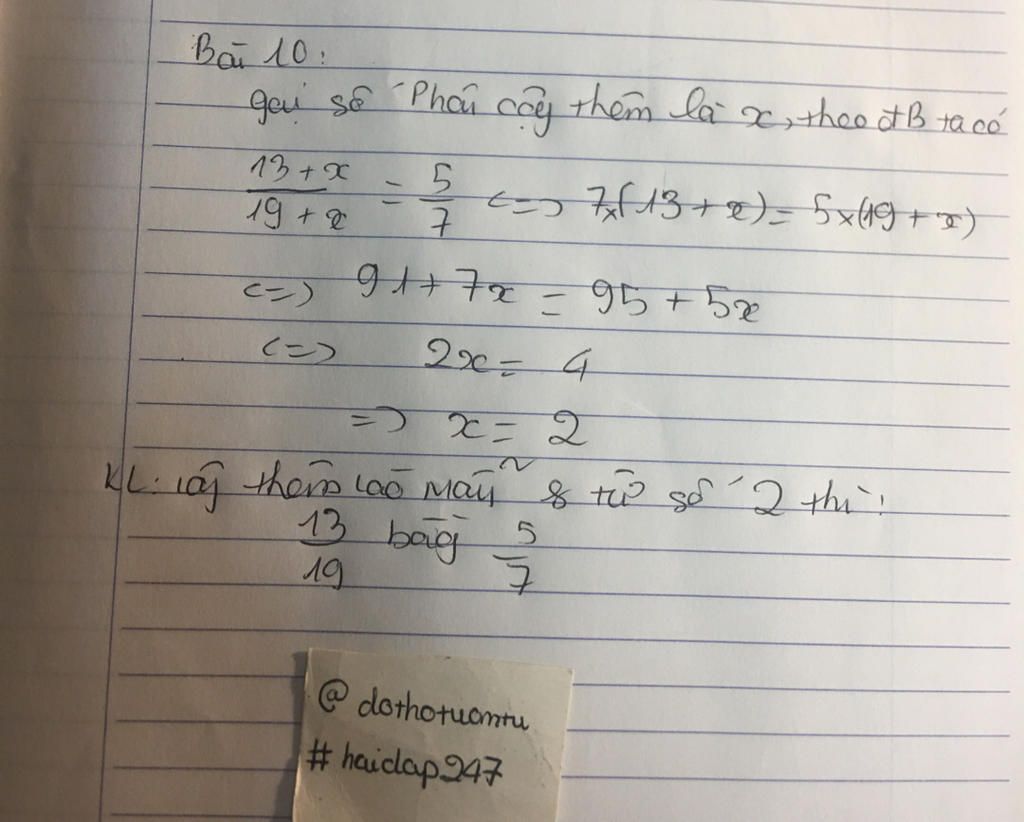 Bài 10:
gọi số phải cộng thêm là x, theo đB ta có
13 + x / 19 + x = 5 / 7 <=> 7x(13 + x) = 5x(19 + x)
<=> 91 + 7x = 95 + 5x
<=> 2x = 4
=> x = 2
KL: cộng thêm vào mẫu & tử số 2 thì:
13 / 19 bằng 5 / 7
@ dothotuantu
# hoidap247